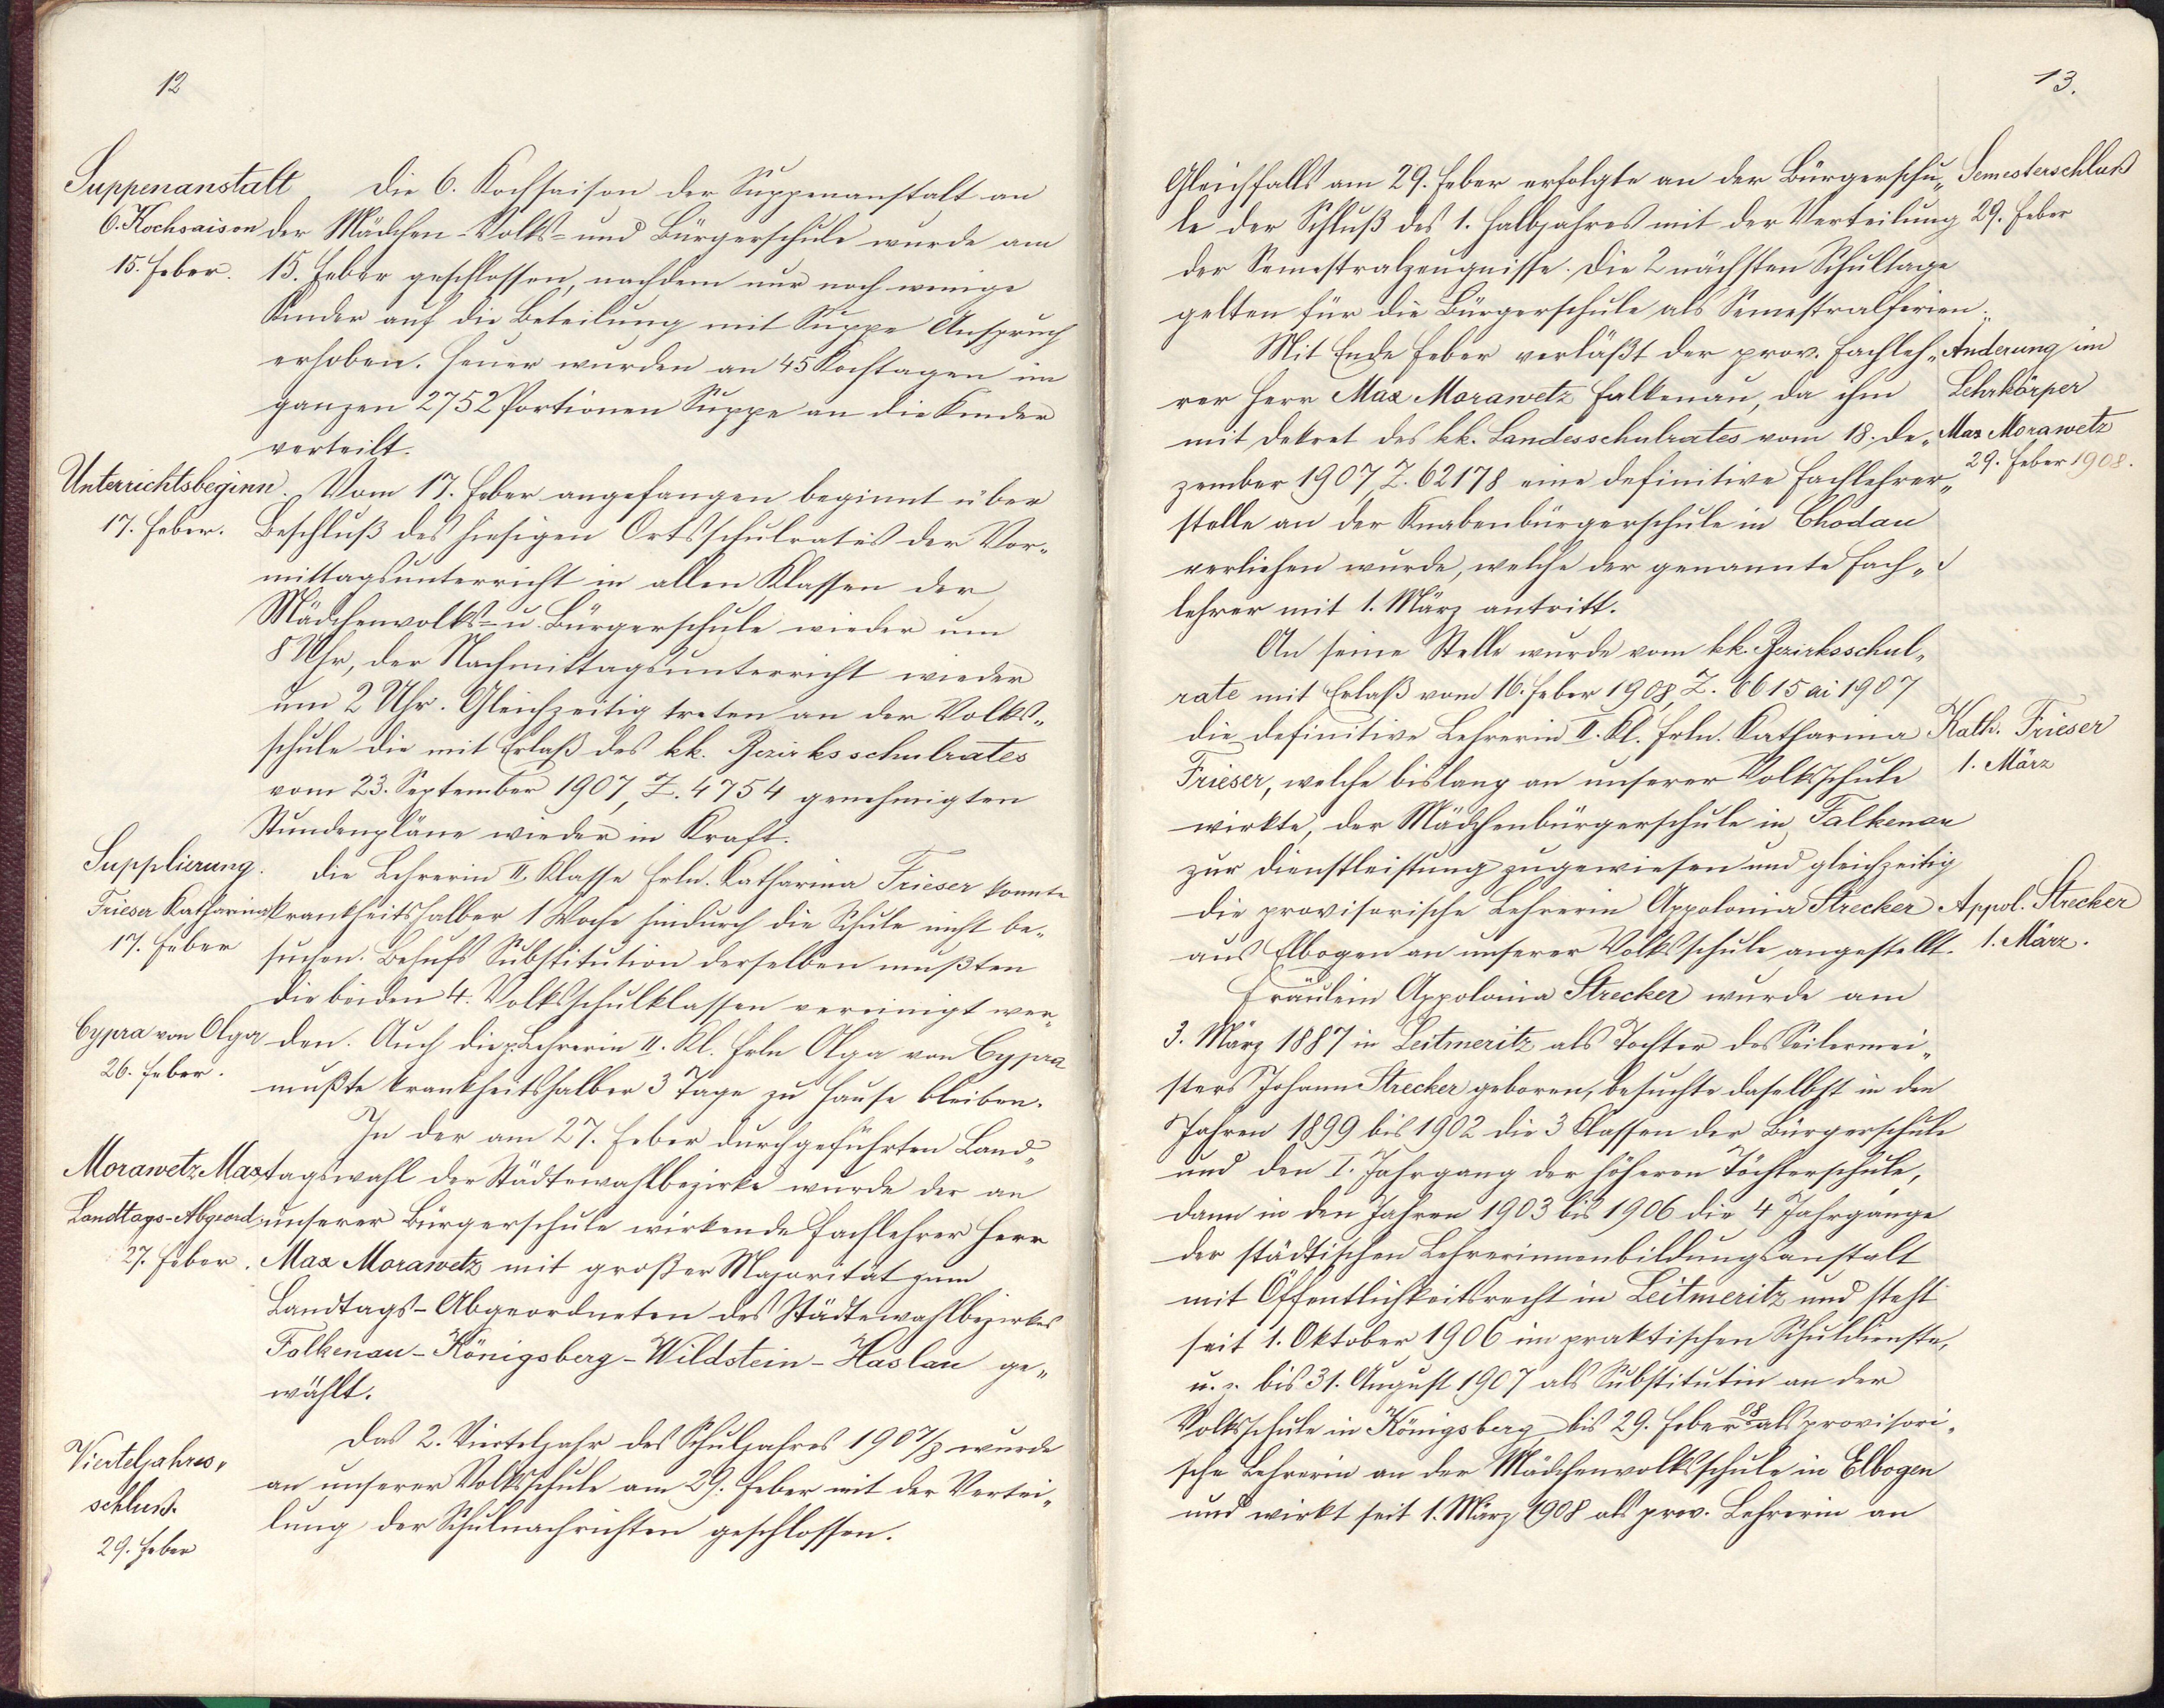 12
Suppenanstalt
6. Kochsaison
15. Feber.
Die 6. Kochsaison der Suppenanstalt an
der Mädchen-Volks- und Bürgerschule wurde am
15. Feber geschlossen, nachdem nur noch wenige
Kinder auf die Beteilung mit Suppe Anspruch
erhoben. Heuer wurden an 45 Kochtagen im
ganzen 2752 Portionen Suppe an die Kinder
verteilt.
Unterrichtsbeginn.
17. Feber.
Vom 17. Feber angefangen beginnt über
Beschluß des hiesigen Ortsschulrates der Vor-
mittagsunterricht in allen Klassen der
Mädchenvolks- u. Bürgerschule wieder um
8 Uhr, der Nachmittagsunterricht wieder
um 2 Uhr. Gleichzeitig treten an der Volks-
schule die mit Erlaß des kk. Bezirksschulrates
vom 23. September 1907, Z. 4754 genehmigten
Stundenpläne wieder in Kraft.
Supplierung.
Frieser Katharina
17. Feber
Die Lehrerin II. Klasse Frln. Katharina Frieser konnte
krankheitshalber 1 Woche hindurch die Schule nicht be-
suchen. Behufs Substitution derselben mußten
die beiden 4. Volksschulklassen vereinigt wer-
Cypra von Olga
26. Feber.
den. Auch die p. Lehrerin II. Kl. Frln Olga von Cypra
mußte krankheitshalber 3 Tage zu Hause bleiben.
In der am 27. Feber durchgeführten Land-
Morawetz Max
Landtags-Abgeord.
27. Feber.
tagswahl der Städtewahlbezirke wurde der an
unserer Bürgerschule wirkende Fachlehrer Herr
Max Morawetz mit großer Majorität zum
Landtags-Abgeordneten des Städtewahlbezirkes
Falkenau-Königsberg-Wildstein-Haslau ge-
wählt.
Vierteljahres-
schluß.
29. Feber
Das 2. Vierteljahr des Schuljahres 1907/8 wurde
an unserer Volksschule am 29. Feber mit der Vertei-
lung der Schulnachrichten geschlossen.
13.
Gleichfalls am 29. Feber erfolgte an der Bürgerschu-
le der Schluß des 1. Halbjahres mit der Verteilung
der Semestralzeugnisse. Die 2 nächsten Schultage
gelten für die Bürgerschule als Semestralferien.
Semesterschluß
29. Feber
Mit Ende Feber verläßt der prov. Fachleh-
rer Herr Max Morawetz Falkenau, da ihm
mit Dekret des kk. Landesschulrates vom 18. De-
zember 1907, Z. 62178 eine definitive Fachlehrer-
stelle an der Knabenbürgerschule in Chodau
verliehen wurde, welche der genannte Fach-
lehrer mit 1. März antritt.
Änderung im
Lehrkörper
Max Morawetz
29. Feber 1908.
An seine Stelle wurde vom kk. Bezirksschul-
rate mit Erlaß vom 16. Feber 1908, Z. 6615 ai 1907
die definitive Lehrerin II. Kl. Frln. Katharina
Frieser, welche bislang an unserer Volksschule
wirkte, der Mädchenbürgerschule in Falkenau
zur Dienstleistung zugewiesen und gleichzeitig
die provisorische Lehrerin Appolonia Strecker
aus Elbogen an unserer Volksschule angestellt.
Kath. Frieser
1. März
Appol. Strecker
1. März.
Fräulein Appolonia Strecker wurde am
3. März 1887 in Leitmeritz als Tochter des Seilermei-
sters Johann Strecker geboren, besuchte daselbst in den
Jahren 1899 bis 1902 die 3 Klassen der Bürgerschule
und den I. Jahrgang der höheren Töchterschule,
dann in den Jahren 1903 bis 1906 die 4 Jahrgänge
der städtischen Lehrerinnenbildungsanstalt
mit Öffentlichkeitsrecht in Leitmeritz und steht
seit 1. Oktober 1906 im praktischen Schuldienste,
u. z. bis 31. August 1907 als Substitutin an der
Volksschule in Königsberg, bis 29. Feber 08 als provisori-
sche Lehrerin an der Mädchenvolksschule in Elbogen
und wirkt seit 1. März 1908 als prov. Lehrerin an